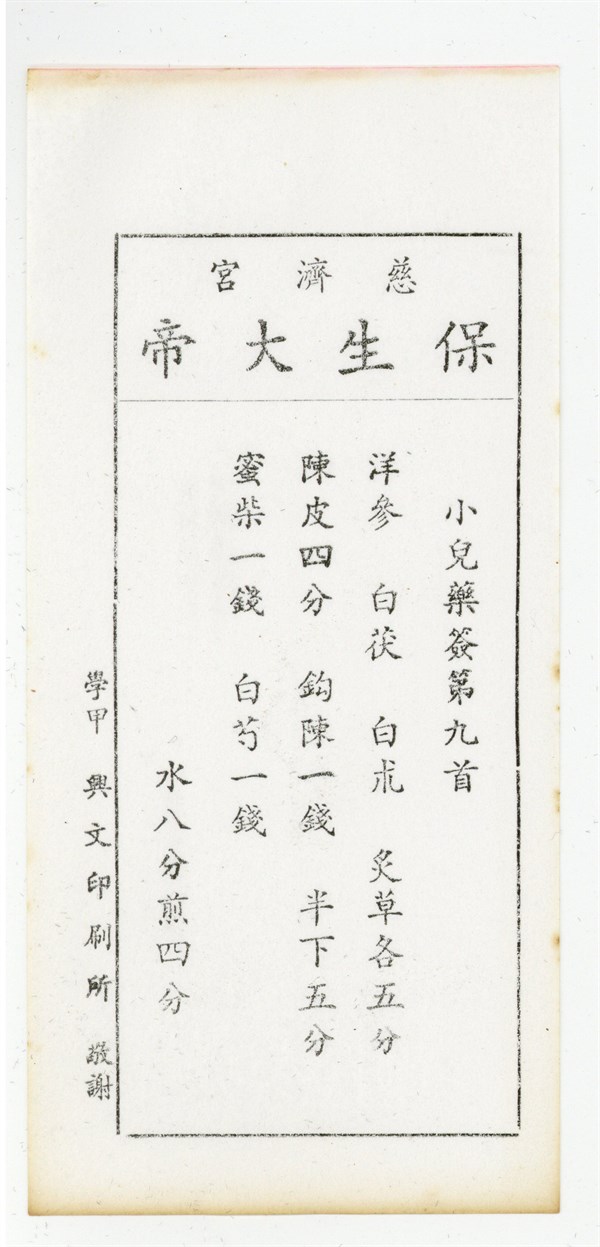 慈濟宮
保生大帝
小兒藥簽第九首
洋參 白茯 白朮 炙草各五分
陳皮四分 鈎陳一錢 半下五分
蜜柴一錢 白芍一錢
水八分煎四分
學甲 興文印刷所 敬謝